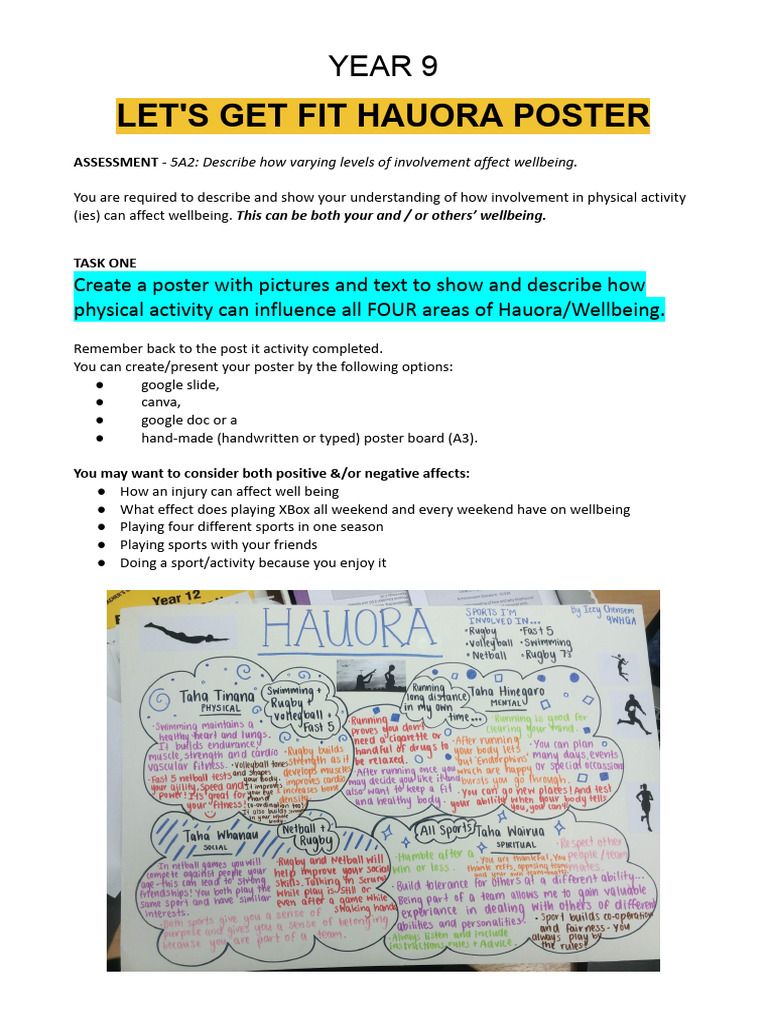 YEAR 9
LET'S GET FIT HAUORA POSTER
ASSESSMENT - 5A2: Describe how varying levels of involvement affect wellbeing.
You are required to describe and show your understanding of how involvement in physical activity
(ies) can affect wellbeing. This can be both your and / or others’ wellbeing.
TASK ONE
Create a poster with pictures and text to show and describe how
physical activity can influence all FOUR areas of Hauora/Wellbeing.
Remember back to the post it activity completed.
You can create/present your poster by the following options:
● google slide,
● canva,
● google doc or a
● hand-made (handwritten or typed) poster board (A3).
You may want to consider both positive &/or negative affects:
● How an injury can affect well being
● What effect does playing XBox all weekend and every weekend have on wellbeing
● Playing four different sports in one season
● Playing sports with your friends
● Doing a sport/activity because you enjoy it
Year 12
HAUORA
SPORTS I'M
INVOLVED IN...
•Rugby •Fast 5
•Volleyball •Swimming
•Netball •Rugby 7s
By Izzy Chensem
9WHGA
Taha Tinana
PHYSICAL
Swimming +
Rugby +
Volleyball +
Fast 5
•Swimming maintains a
healthy heart and lungs.
It builds endurance,
muscle, strength and cardio
vascular fitness.
•Fast 5 netball tests
your agility, speed and
power! It is great for
your fitness!
•Volleyball tones
and shapes
your body.
It improves
your eye
hand
co-ordination too!
It also builds
in your whole
body
•Rugby builds
strength as it
develops muscles
improves cardio
+ increases bone
density.
Running
long distance
in my own
time...
Taha Hinegaro
MENTAL
Running is good for
clearing your mind.
Running
proves you don't
need a cigarette or
handful of drugs to
be relaxed.
•After running once you
may decide you like it and
also want to keep a fit
and healthy body.
•After running
your body lets
out 'Endorphins'
which are happy
bursts you go through.
•You can plan
many days, events
or special occassion
You can go new places! And test
your ability when your body tells
you, you can't
Taha Whanau
SOCIAL
Netball +
Rugby
•In netball games you will
compete against people your
age-this can lead to strong
friendships! You both play the
same sport and have similar
interests.
•Rugby and Netball will
help improve your social
skills. Talking in scrums
while play is still or
even after a game while
shaking hands
•Both sports give you a sense of
purpose and gives you a sense of belonging
because you are part of a team.
All Sports
Taha Wairua
SPIRITUAL
•Humble after a
win or loss.
•You are thankful, You
thank refs, opposing team
and your own team-mates.
•Respect other
people / team
mates.
•Build tolerance for others at a different ability...
Being part of a team allows me to gain valuable
experience in dealing with others of different
abilities and personalities.
•Always listen and include
instructions, rules + Advice.
•Sport builds co-operation
and fairness - you
always play by
the rules!